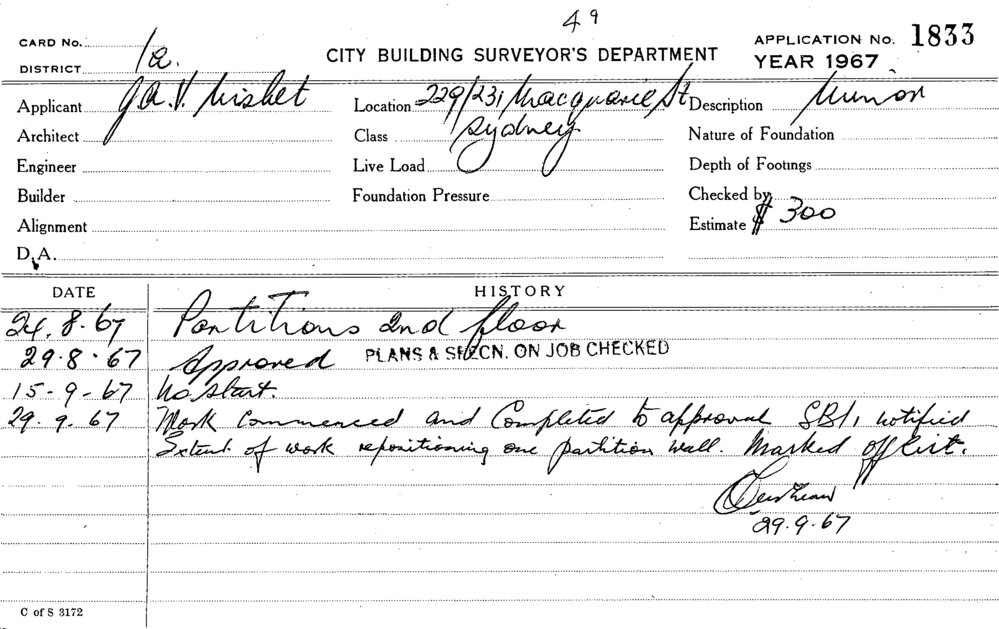 49
CARD No.
DISTRICT 1a.
CITY BUILDING SURVEYOR'S DEPARTMENT
APPLICATION No. 1833
YEAR 1967
Applicant J.A.V. Nisbet
Location 229/231 Macquarie St
Sydney
Description Minor
Architect
Class
Nature of Foundation
Engineer
Live Load
Depth of Footings
Builder
Foundation Pressure
Checked by
Alignment
Estimate $300
D.A.
DATE HISTORY
24.8.67 Partitions 2nd floor
29.8.67 Approved PLANS & SPECN. ON JOB CHECKED
15-9-67 No start.
29.9.67 Work Commenced and Completed to approval SB1, notified
Extent of work repositioning one partition wall. Marked off list.
29.9.67
C of S 3172